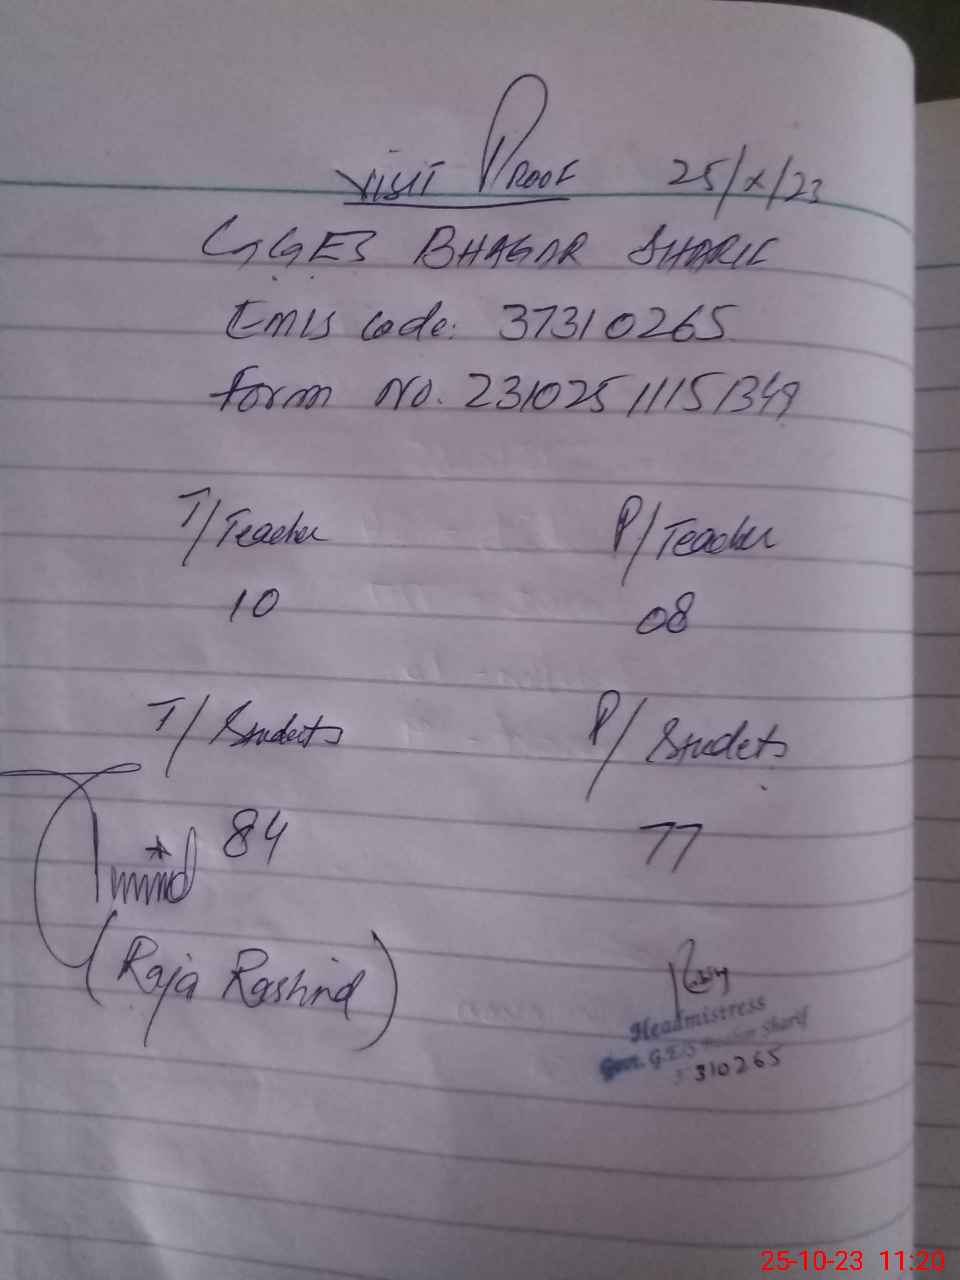 Visit Proof 25/X/23
GGES BHAGAR SHARIF
Emis code: 37310265
Form No. 23102511151349
T/Teacher P/Teacher
10 08
T/Students P/Studets
84 77
(Raja Rashid)
Headmistress
Govt. G.E/S Sharif
310265
25-10-23 11:20